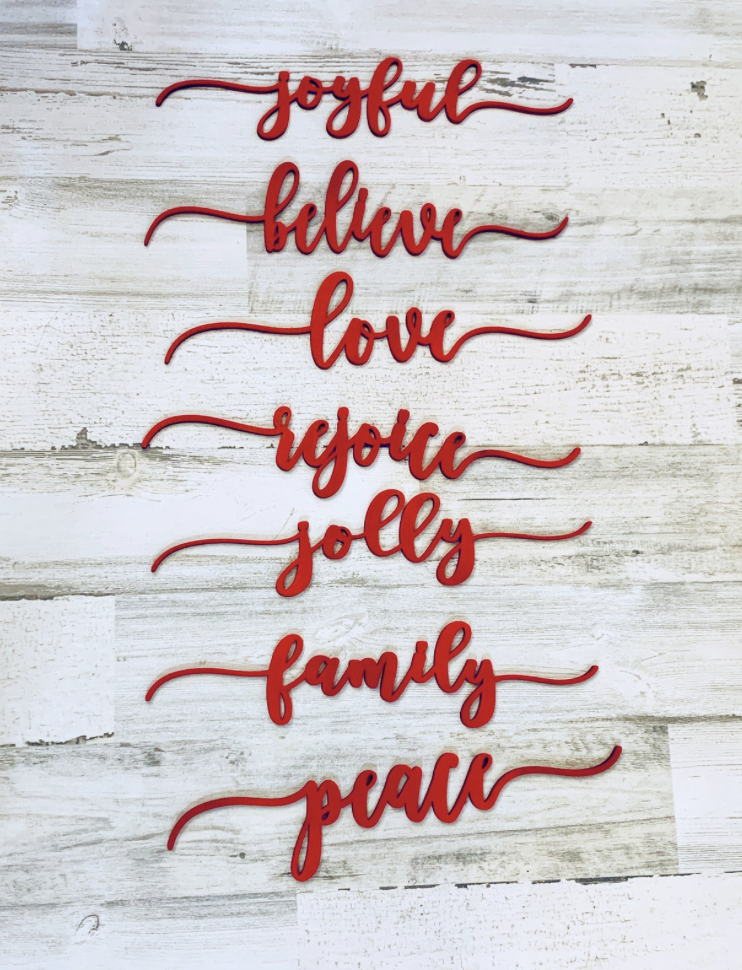 joyful
believe
love
rejoice
jolly
family
peace